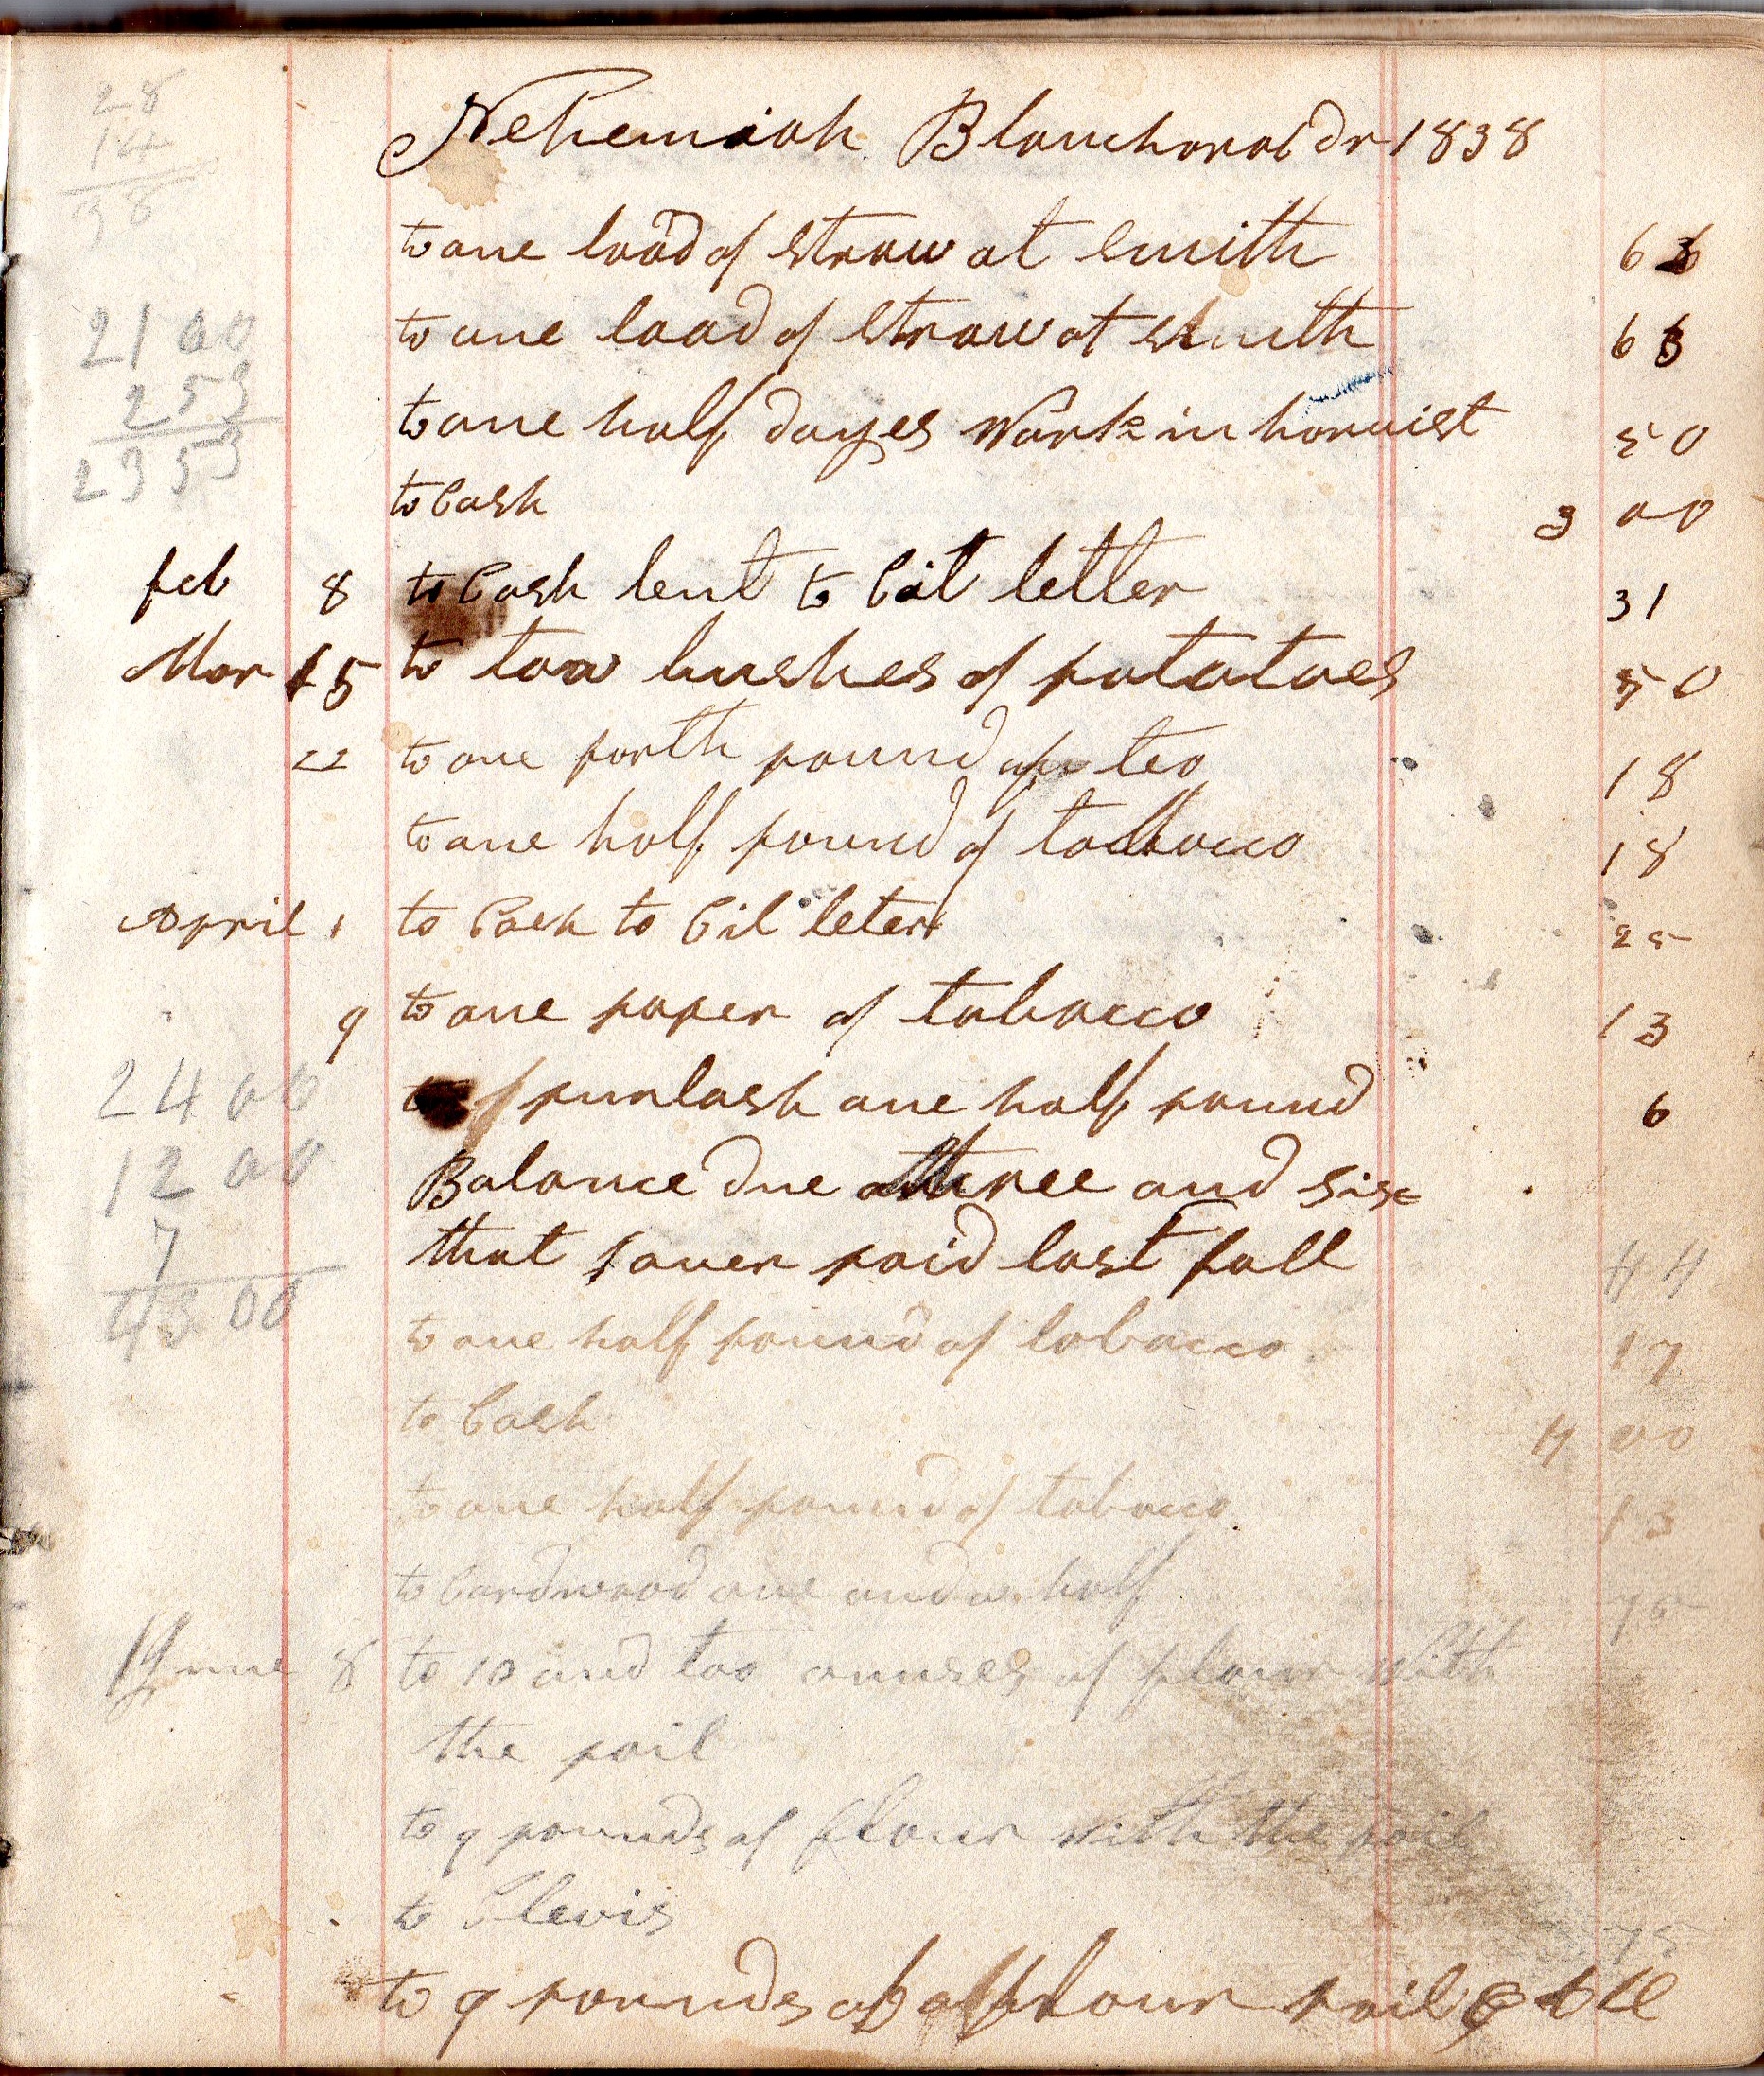 28
14
38
Nehemiah Blanchard dr 1838
to one load of straw at smith 6
to one load of straw at smith 6
2100
253
2353
to one half dayes Work in harvist 50
to Cash 3 00
feb 8 to Cash lent to Git letter 31
Mar 15 to tow bushes of potatoes 50
22 to one forth pound of tea 18
to one half pound of tobbacco 18
April 1 to Cash to Git leter 25
9 to one paper of tobacco 13
of purlash one half pound 6
Balance due three and six
that paid last fall 44
2400
1200
7
4300
to one half pound of tobacco 17
to Cash 4 00
to one half pound of tobacco 13
to Cardwood one and a half 75
June 8 to 10 and too ounses of flour with
the pail
to 9 pounds of flour with the pail
to Clevis 75
to 9 pounds of flour pail